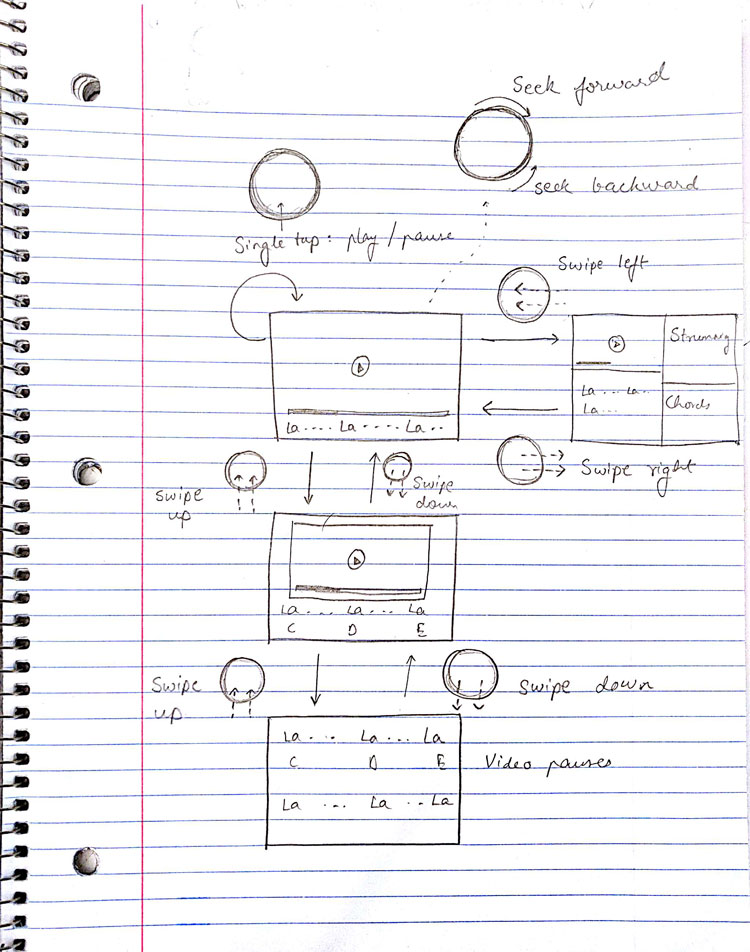 Seek forward
seek backward
Single tap: play / pause
Swipe left
Strumming
La .... La ..... La ..
La ... La ..
La ...
Chords
Swipe right
Swipe
up
Swipe
down
La ... La ... La
C D E
Swipe
up
Swipe down
La ... La ... La
C D E
Video pauses
La ... La .. La